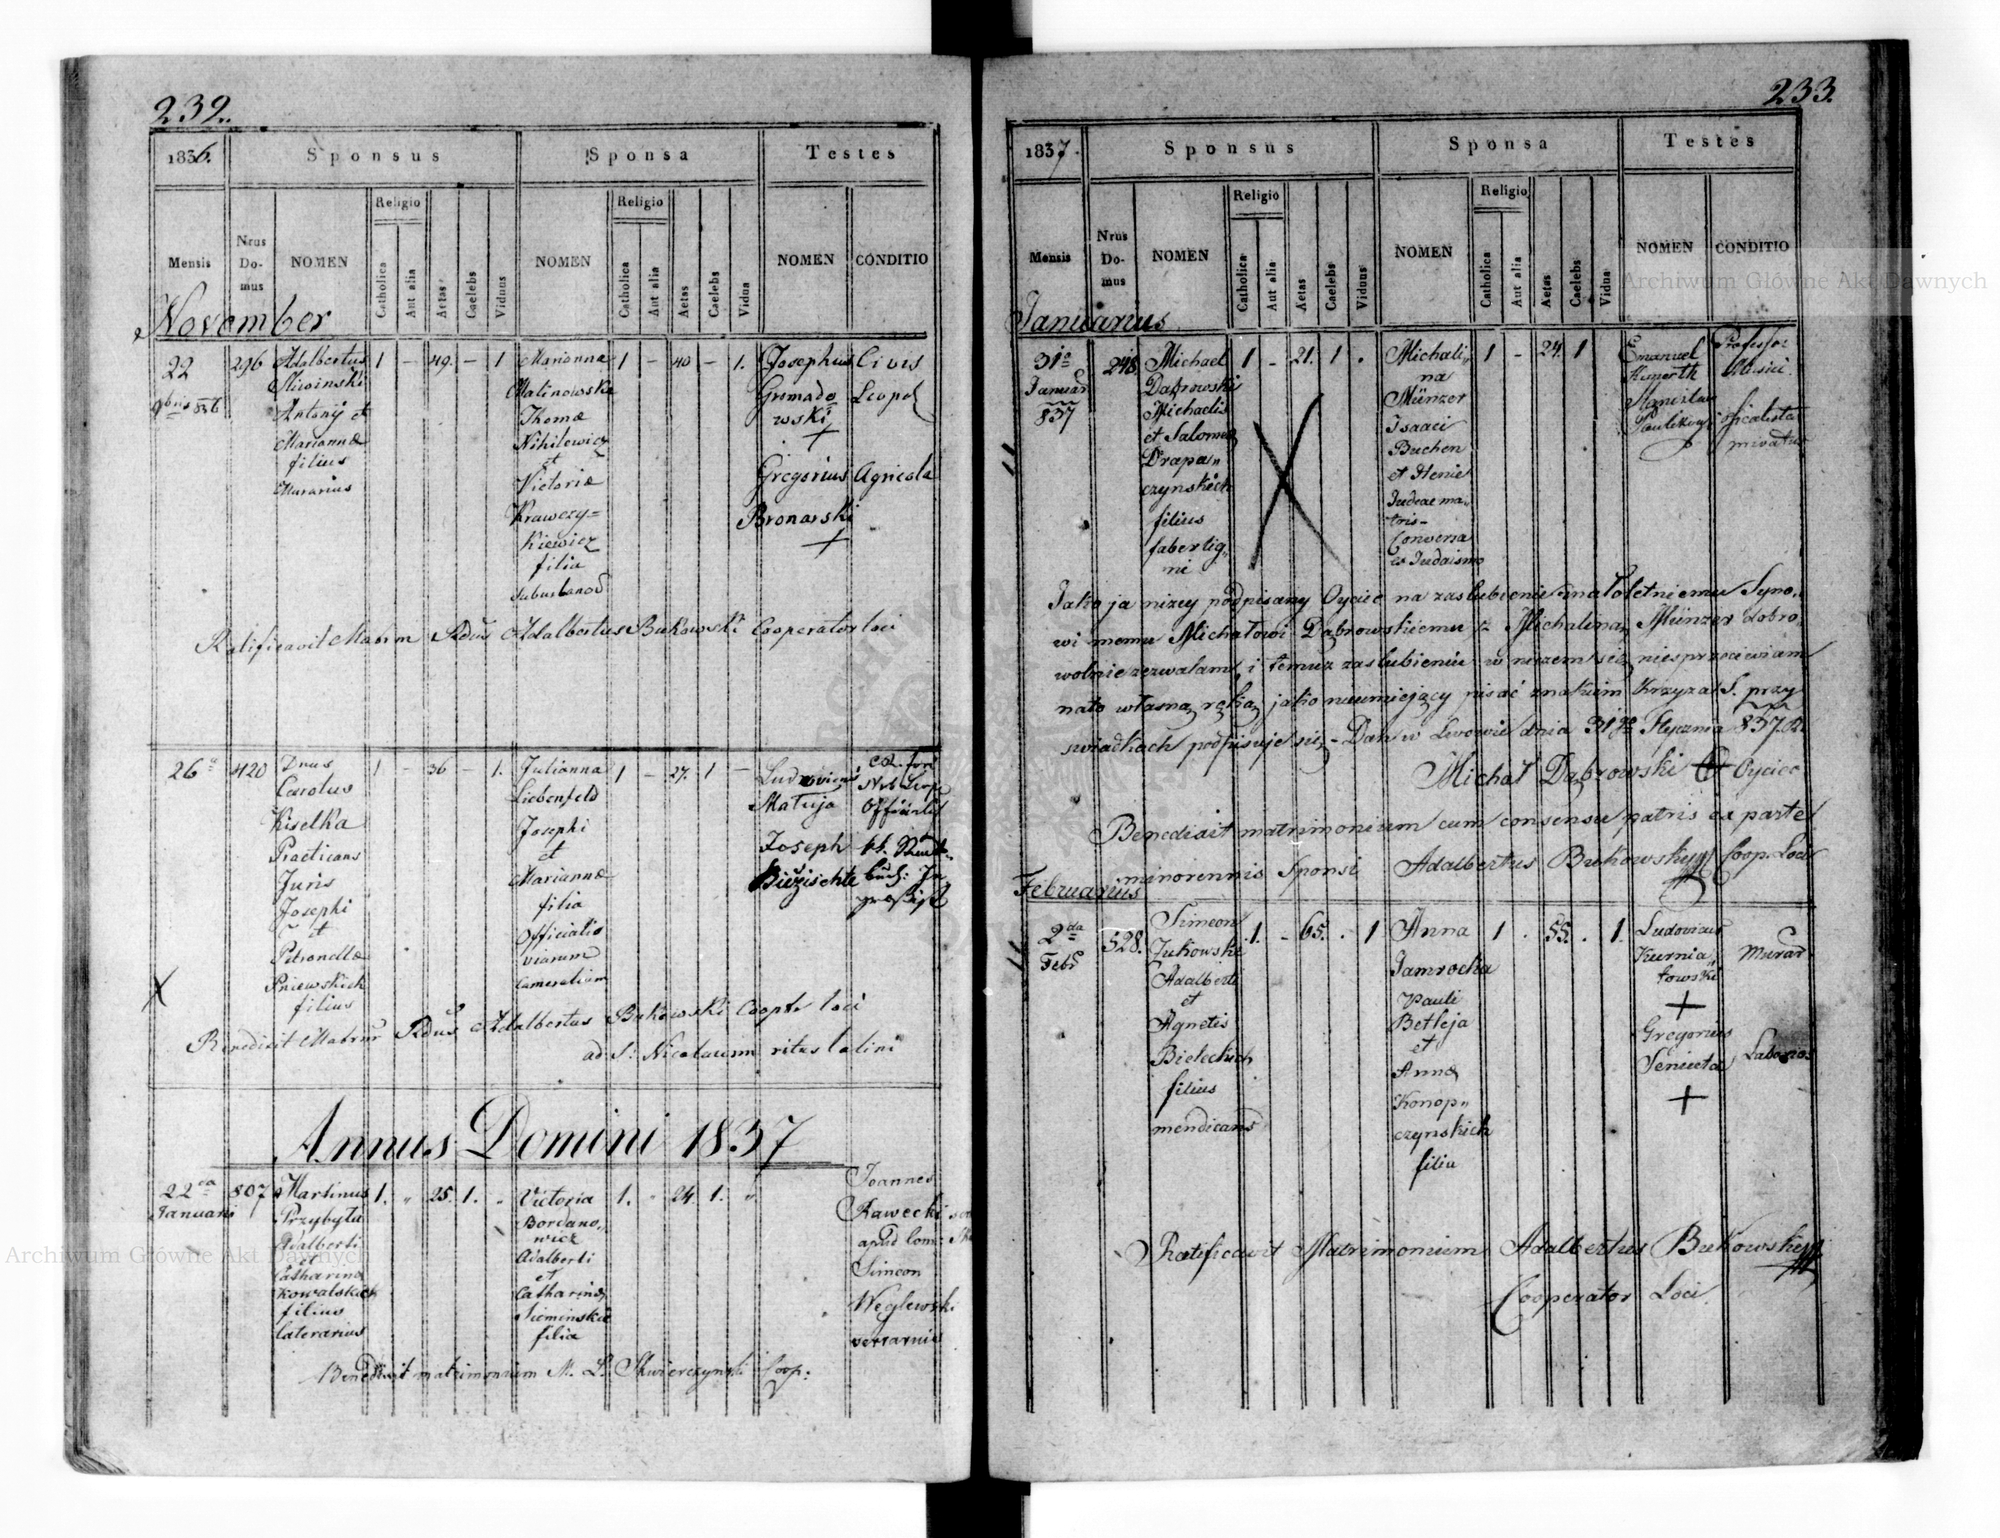 232.
1836.
Sponsus
Sponsa
Testes
Mensis
Nrus Do-mus
NOMEN
Religio
Catholica
Aut alia
Aetas
Caelebs
Viduus
NOMEN
Religio
Catholica
Aut alia
Aetas
Caelebs
Vidua
NOMEN
CONDITIO
November
22
9bris 836
296
Adalbertus
Antonij et
Mariannæ
filius
Murarius
1 - 49. - 1
Marianna
Malinowska
Thomæ
et
Victoriæ
Krawczy=
kiewicz
filia
1 - 40 - 1.
Josephus
Grimado
wski
+
Gregorius
Bronarski
+
Civis
Leopol
Agricola
Ratificavit Matrim Rdus Adalbertus Bukowski Cooperator loci
26
420
Dnus
Carolus
Kiselka
Practicans
Juris
Josephi
et
Petronellæ
Pniewskich
filius
1 - 36 - 1.
Julianna
Liebenfeld
Josephi
et
Mariannæ
filia
Officialis
Cameralium
1 - 27. 1 -
Matuja
Joseph
X
Benedixit Matrim Rdus Adalbertus Bukowski Coopr loci
ad S: Nicolaum ritus latini
Annus Domini 1837
22
Januarii
807
Martinus
Przybyła
Adalberti
et
Catharinæ
Kowalskich
filius
laterarius
1. " 25. 1. "
Victoria
Bordano„
wicz
Adalberti
et
Catharinæ
filia
1. " 24 1. "
Joannes
Rawecki
apud
Simeon
Węglewski
Benedixit matrimonium M. L. Skwierczynski Coop:
233.
1837.
Sponsus
Sponsa
Testes
Mensis
Nrus Do-mus
NOMEN
Religio
Catholica
Aut alia
Aetas
Caelebs
Viduus
NOMEN
Religio
Catholica
Aut alia
Aetas
Caelebs
Vidua
NOMEN
CONDITIO
Januarius
31
Januar
837
248.
Michael
Dąbrowski
Michaelis
et Salomeæ
Drapa„
czynskich
filius
faber lig„
ni
1 - 21. 1 .
Michali„
na
Münzer
Isaaci
Buchen
et Henie
Judeae ma„
tris
Conversa
ex Judaismo
1 - 24. 1
Emanuel
Kunerth
Stanislaw
Professor
Musici.
privatus
X
Jako ja nizey podpisany Oyciec na zaslubienie małoletniemu Syno„
wi memu Michałowi Dąbrowskiemu z Michaliną Münzer dobro„
wolnie zezwalam, i temuz zaslubieniu w niczem się niesprzeciwiam
na to własną ręką jako nieumiejący pisać znakiem Krzyza S. przy
swiadkach podpisuje się - Dan w Lwowie dnia 31go Stycznia 837.
Michał Dąbrowski + Oyciec
Benedixit matrimonium cum consensu patris ex parte
minorennis Sponsi Adalbertus Bukowsky Coop. Loci
Februarius
2da
Febr
528.
Simeon
Żukowski
Adalberti
et
Agnetis
Bieleckich
filius
mendicans
1. - 65. . 1
Anna
Jamrocka
Pauli
Betleja
et
Annæ
Konop„
czynskich
filia
1 . 55. . 1.
Ludovicus
Kurnia„
towski
+
Gregorius
+
Murar
Ratificavit Matrimonium Adalbertus Bukowsky
Cooperator Loci.
Archiwum Główne Akt Dawnych
Archiwum Główne Akt Dawnych